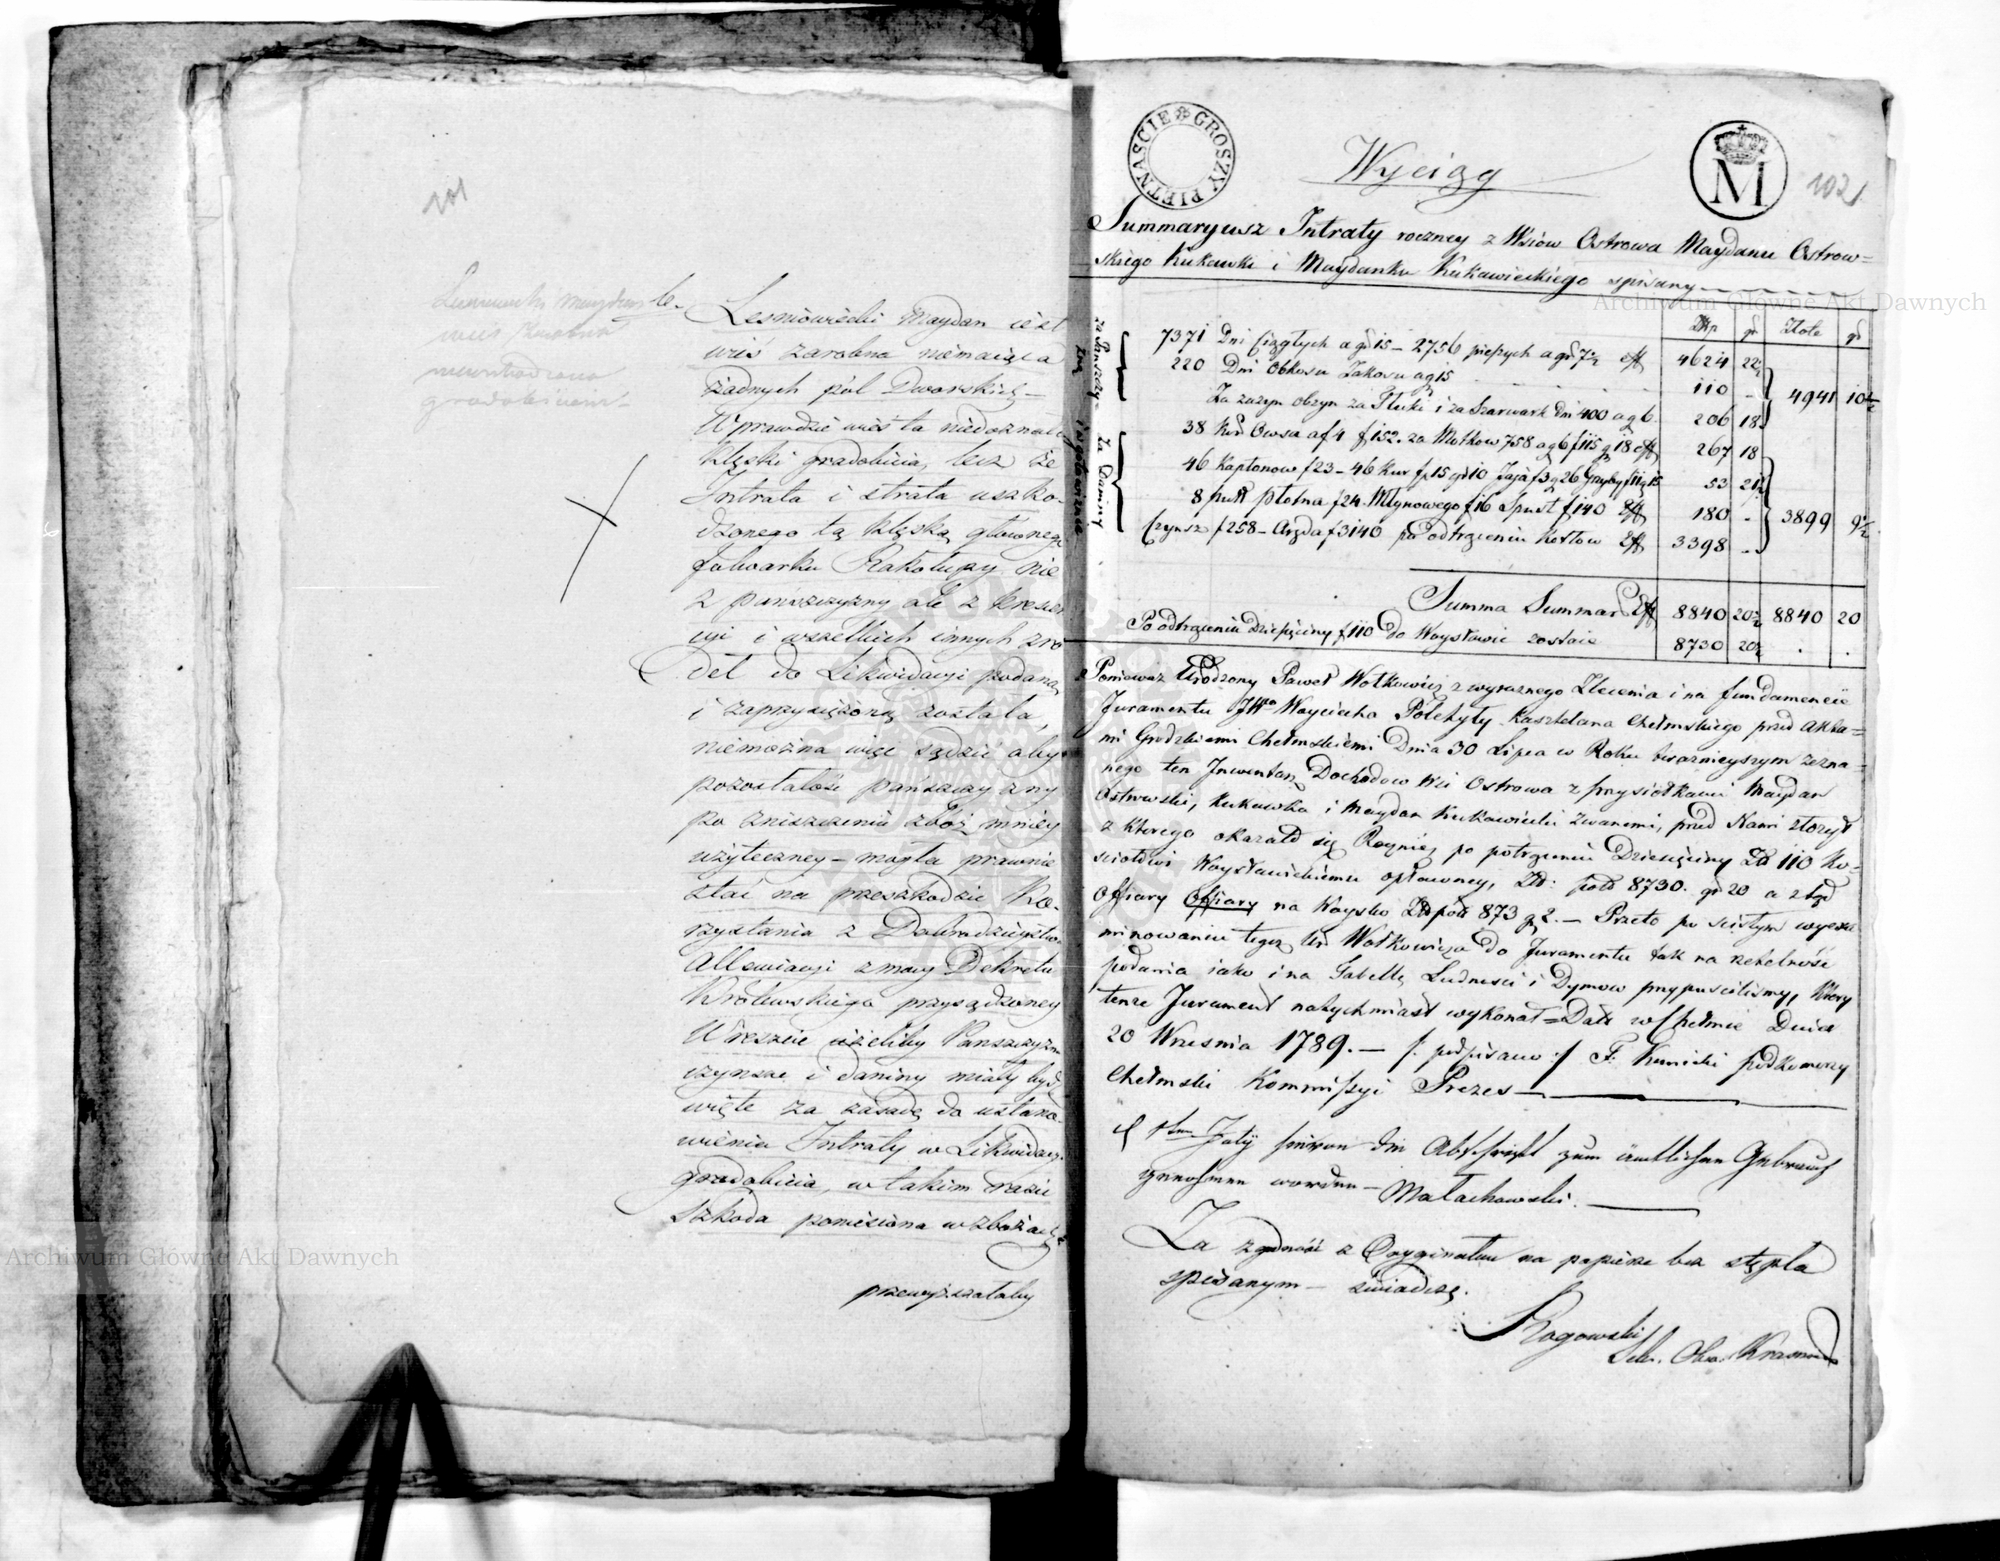 101
6. Lesniowiecki Maydan iest
wieś zarobna niemaiąca
żadnych pól Dworskich –
Wprawdzie wieś ta niedoznała
klęski gradobicia, lecz że
Intrata i strata uszko-
dzonego tą klęską głównego
folwarku Rakołupy nie
z panszczyzny ale z kresen
cyi i wszelkich innych źró
deł do Likwidacyi podaną
i zaprzysiężoną została,
niemożna więc sądzić aby
pozostałość pańszczyzny
po zniszczeniu zbóż mniey
użyteczney – mogła prawnie
stać na przeszkodzie Ko-
rzystania z Dobrodzieystwa
Allewiacyi z mocy Dekretu
Królewskiego przysądzoney
Wreszcie ieżeliby Panszczyzna
czynsze i daniny miały być
wzięte za zasadę do ustano
wienia Intraty w Likwidacyi
gradobicia, w takim razie
Szkoda poniesiona w zbożach
przewyższałaby
PIETNASCIE GROSZY
M
102
Wyciąg
Summaryusz Intraty roczney z Wsiow Ostrowa Maydanu Ostrow=
skiego Kukawki i Maydanku Kukawieckiego spisany
Złp gr Złote gr
za Panszczy-
znę i szarwarki
7371 Dni Ciągłych a gr 15 – 2756 pieszych a gr 7½ eff 4624 22½
220 Dni Obkosu Zakosu a g 15 110 – 4941 10½
Za zażyn obżyn za Tłuki i za Szarwark dni 400 a g 6. 206 18
Za Daniny
38 Kor Owsa a f 4 f 152. za Motkow 758 a g 6 f 115 g 18 eff 267 18
46 Kapłonow f 23 – 46 Kur f 15 gr 10 Jaja f 3 g 26 Grzyby f 11 g 15 53 21½
8 Płotna f 24. Młynowego f 16 Spust f 140 eff 180 – 3899 9½
Czynsz f 258 – Aręda f 3140 po odtrąceniu Kosztow eff 3398 –
Summa Summar eff 8840 20½ 8840 20
Po odtrąceniu Dziesięciny f 110 do Woysławic zostaie 8730 20½ . .
Ponieważ Urodzony Paweł Wołkowicz z wyraznego Zlecenia i na fundamencie
Juramentu JWo Woyciecha Poletyły Kasztelana Chełmskiego przed Akta=
mi Grodzkiemi Chełmskiemi Dnia 30 Lipca w Roku teraznieyszym zezna=
nego ten Inwentarz Dochodow Wsi Ostrowa z przysiołkami Maydan
Ostrowski, Kukawka i Maydan Kukawiecki zwanemi, przed Nami złożył
z ktorego okazało się Roczniey po potrąceniu Dziesięciny Zł 110 Ko=
sciołowi Woysławickiemu opłacaney, Zł: pols 8730. gr 20 a ztąd
Offiary Offiary na Woysko Zł pols 873 g 2. – Przeto po scisłym wyexa
minowaniu tegoz Ur. Wołkowicza do Juramentu tak na rzetelność
podania iako i na Tabellę Ludnosci i Dymow przypuscilismy, ktory
tenże Jurament natychmiast wykonał = Datt w Chełmie Dnia
20 Wrzesnia 1789. – /: podpisano :/ F: Kunicki Podkomorzy
Chełmski Kommissyi Prezes –
Jały hievon die Abschrift zum ämtlichen Gebrauch
genohmen worden – Małachowski.
Za zgodność z Oryginałem na papierze bez stępla
spisanym – świadczę.
Rogowski
Sekr. Obw. Krasnost.
Archiwum Główne Akt Dawnych
Archiwum Główne Akt Dawnych